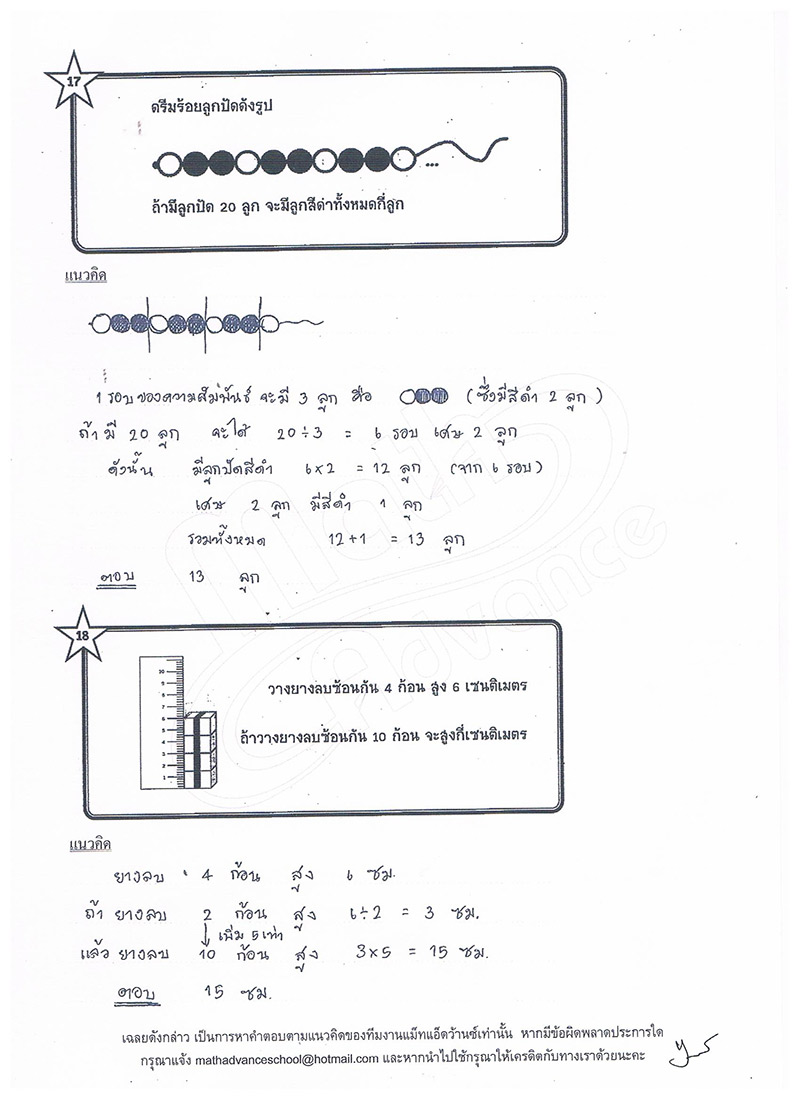 17
ดรีมร้อยลูกปัดดังรูป
...
ถ้ามีลูกปัด 20 ลูก จะมีลูกสีดำทั้งหมดกี่ลูก
แนวคิด
1 รอบของความสัมพันธ์ จะมี 3 ลูก คือ (ซึ่งมีสีดำ 2 ลูก)
ถ้ามี 20 ลูก จะได้ 20÷3 = 6 รอบ เศษ 2 ลูก
ดังนั้น มีลูกปัดสีดำ 6×2 = 12 ลูก (จาก 6 รอบ)
เศษ 2 ลูก มีสีดำ 1 ลูก
รวมทั้งหมด 12+1 = 13 ลูก
ตอบ 13 ลูก
Math Advance
18
10
9
8
7
6
5
4
3
2
1
วางยางลบซ้อนกัน 4 ก้อน สูง 6 เซนติเมตร
ถ้าวางยางลบซ้อนกัน 10 ก้อน จะสูงกี่เซนติเมตร
แนวคิด
ยางลบ 4 ก้อน สูง 6 ซม.
ถ้า ยางลบ 2 ก้อน สูง 6÷2 = 3 ซม.
เพิ่ม 5 เท่า
แล้ว ยางลบ 10 ก้อน สูง 3×5 = 15 ซม.
ตอบ 15 ซม.
เฉลยดังกล่าว เป็นการหาคำตอบตามแนวคิดของทีมงานแม็ทแอ็ดว้านซ์เท่านั้น หากมีข้อผิดพลาดประการใด
กรุณาแจ้ง mathadvanceschool@hotmail.com และหากนำไปใช้กรุณาให้เครดิตกับทางเราด้วยนะคะ